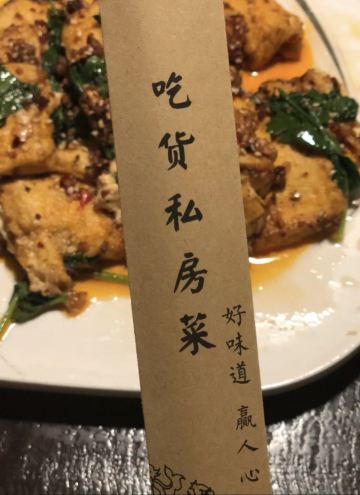 吃货私房菜
好味道 赢人心